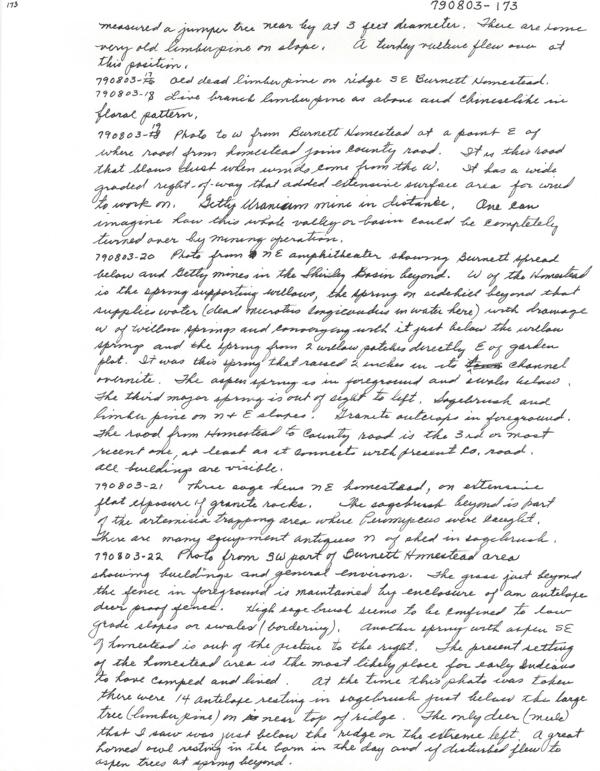 173
790803-173
measured a juniper tree near by at 3 feet diameter. There are some
very old limber pine on slope. A turkey vulture flew over at
this position.
790803-17 Old dead limber pine on ridge SE Burnett Homestead.
790803-18 Live branch limber pine as above and chineselike in
floral pattern.
790803-19 Photo to W from Burnett Homestead at a point E of
where road from homestead joins county road. It is this road
that blows dust when winds come from the W. It has a wide
graded right-of-way that added extensive surface area for wind
to work on. Getty Uranium mine in distance. One can
imagine how this whole valley or basin could be completely
turned over by mining operation.
790803-20 Photo from NE amphitheater showing Burnett spread
below and Getty mines in the Shirley Basin beyond. W of the Homestead
is the spring supporting willows, the spring on sidehill beyond that
supplies water (dead Microtus longicaudus in water here) with drainage
W of willow springs and converging with it just below the willow
spring and the spring from 2 willow patches directly E of garden
plot. It was this spring that raised 2 inches in its channel
overnite. The aspen spring is in foreground and swales below.
The third major spring is out of sight to left. Sagebrush and
limber pine on N + E slopes. Granite outcrops in foreground.
The road from Homestead to County road is the 3rd or most
recent one, at least as it connects with present Co. road.
All buildings are visible.
790803-21 Three sage hens NE homestead, on extensive
flat exposure of granite rocks. The sagebrush beyond is part
of the artemisia trapping area where Peromyscus were caught.
There are many equipment antiques N of shed in sagebrush.
790803-22 Photo from SW part of Burnett Homestead area
showing buildings and general environs. The grass just beyond
the fence in foreground is maintained by enclosure of an antelope
deer proof fence. High sage brush seems to be confined to low
grade slopes or swales (bordering). Another spring with aspen SE
of homestead is out of the picture to the right. The present setting
of the homestead area is the most likely place for early Indians
to have camped and lived. At the time this photo was taken
there were 14 antelope resting in sagebrush just below the large
tree (limber pine) on near top of ridge. The only deer (mule)
that I saw was just below the ridge on the extreme left. A great
horned owl resting in the barn in the day and if disturbed flew to
aspen trees at spring beyond.